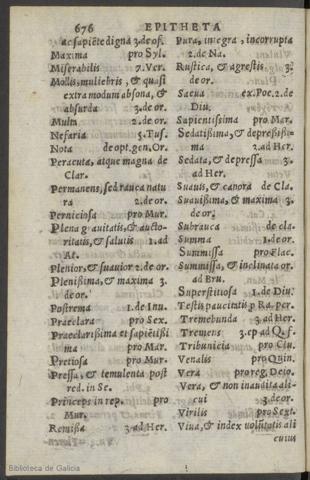 676 EPITHETA
ac sapiẽte digna 3. de of.
Maxima pro Syl.
Miserabilis 7. Ver.
Mollis, muliebris, & quasi
extra modum absona, &
absurda 3. de or.
Multa 2. de or.
Nefaria 5. Tus.
Nota de opt. gen. Or.
Peracuta, atque magna de
Clar.
Permanens, sed rauca natu
ra 2. de or.
Perniciosa pro Mur.
Plena grauitatis, & aucto-
ritatis, & salutis 1. ad
At.
Plenior, & suauior 2. de or.
Plenißima, & maxima 3.
de or.
Postrema 1. de Inu.
Praeclara pro Sex.
Praeclarißima et sapiẽtißi
ma pro Mar.
Pretiosa pro Mur.
Pressa, & temulenta post
red. in Se.
Princeps in rep. pro
Mur.
Remißa 3. ad Her.
Pura, integra, incorrupta
2. de Na.
Rustica, & agrestis 3.
de or.
Saeua ex. Poe. 2. de
Diu.
Sapientissima pro Mar.
Sedatißima, & depreßißi-
ma 2. ad Her.
Sedata, & depressa 3.
ad Her.
Suauis, & canora de Cla.
Suauißima, & maxima 3.
de or.
Subrauca de cla.
Summa 1. de or.
Summissa pro Flac.
Summissa, & inclinata or.
ad Bru.
Superstitiosa 1. de Diu.
Testis paucitatis p Ra. per.
Tremebunda 3. ad Her.
Tremens 3. ep ad Q. f.
Tribunicia pro Clu.
Venalis pro Quin.
Vera pro reg. Deio.
Vera, & non inaudita ali-
cui 3. de or.
Virilis pro Sext.
Viua, & index volũtatis ali
cuius
Biblioteca de Galicia